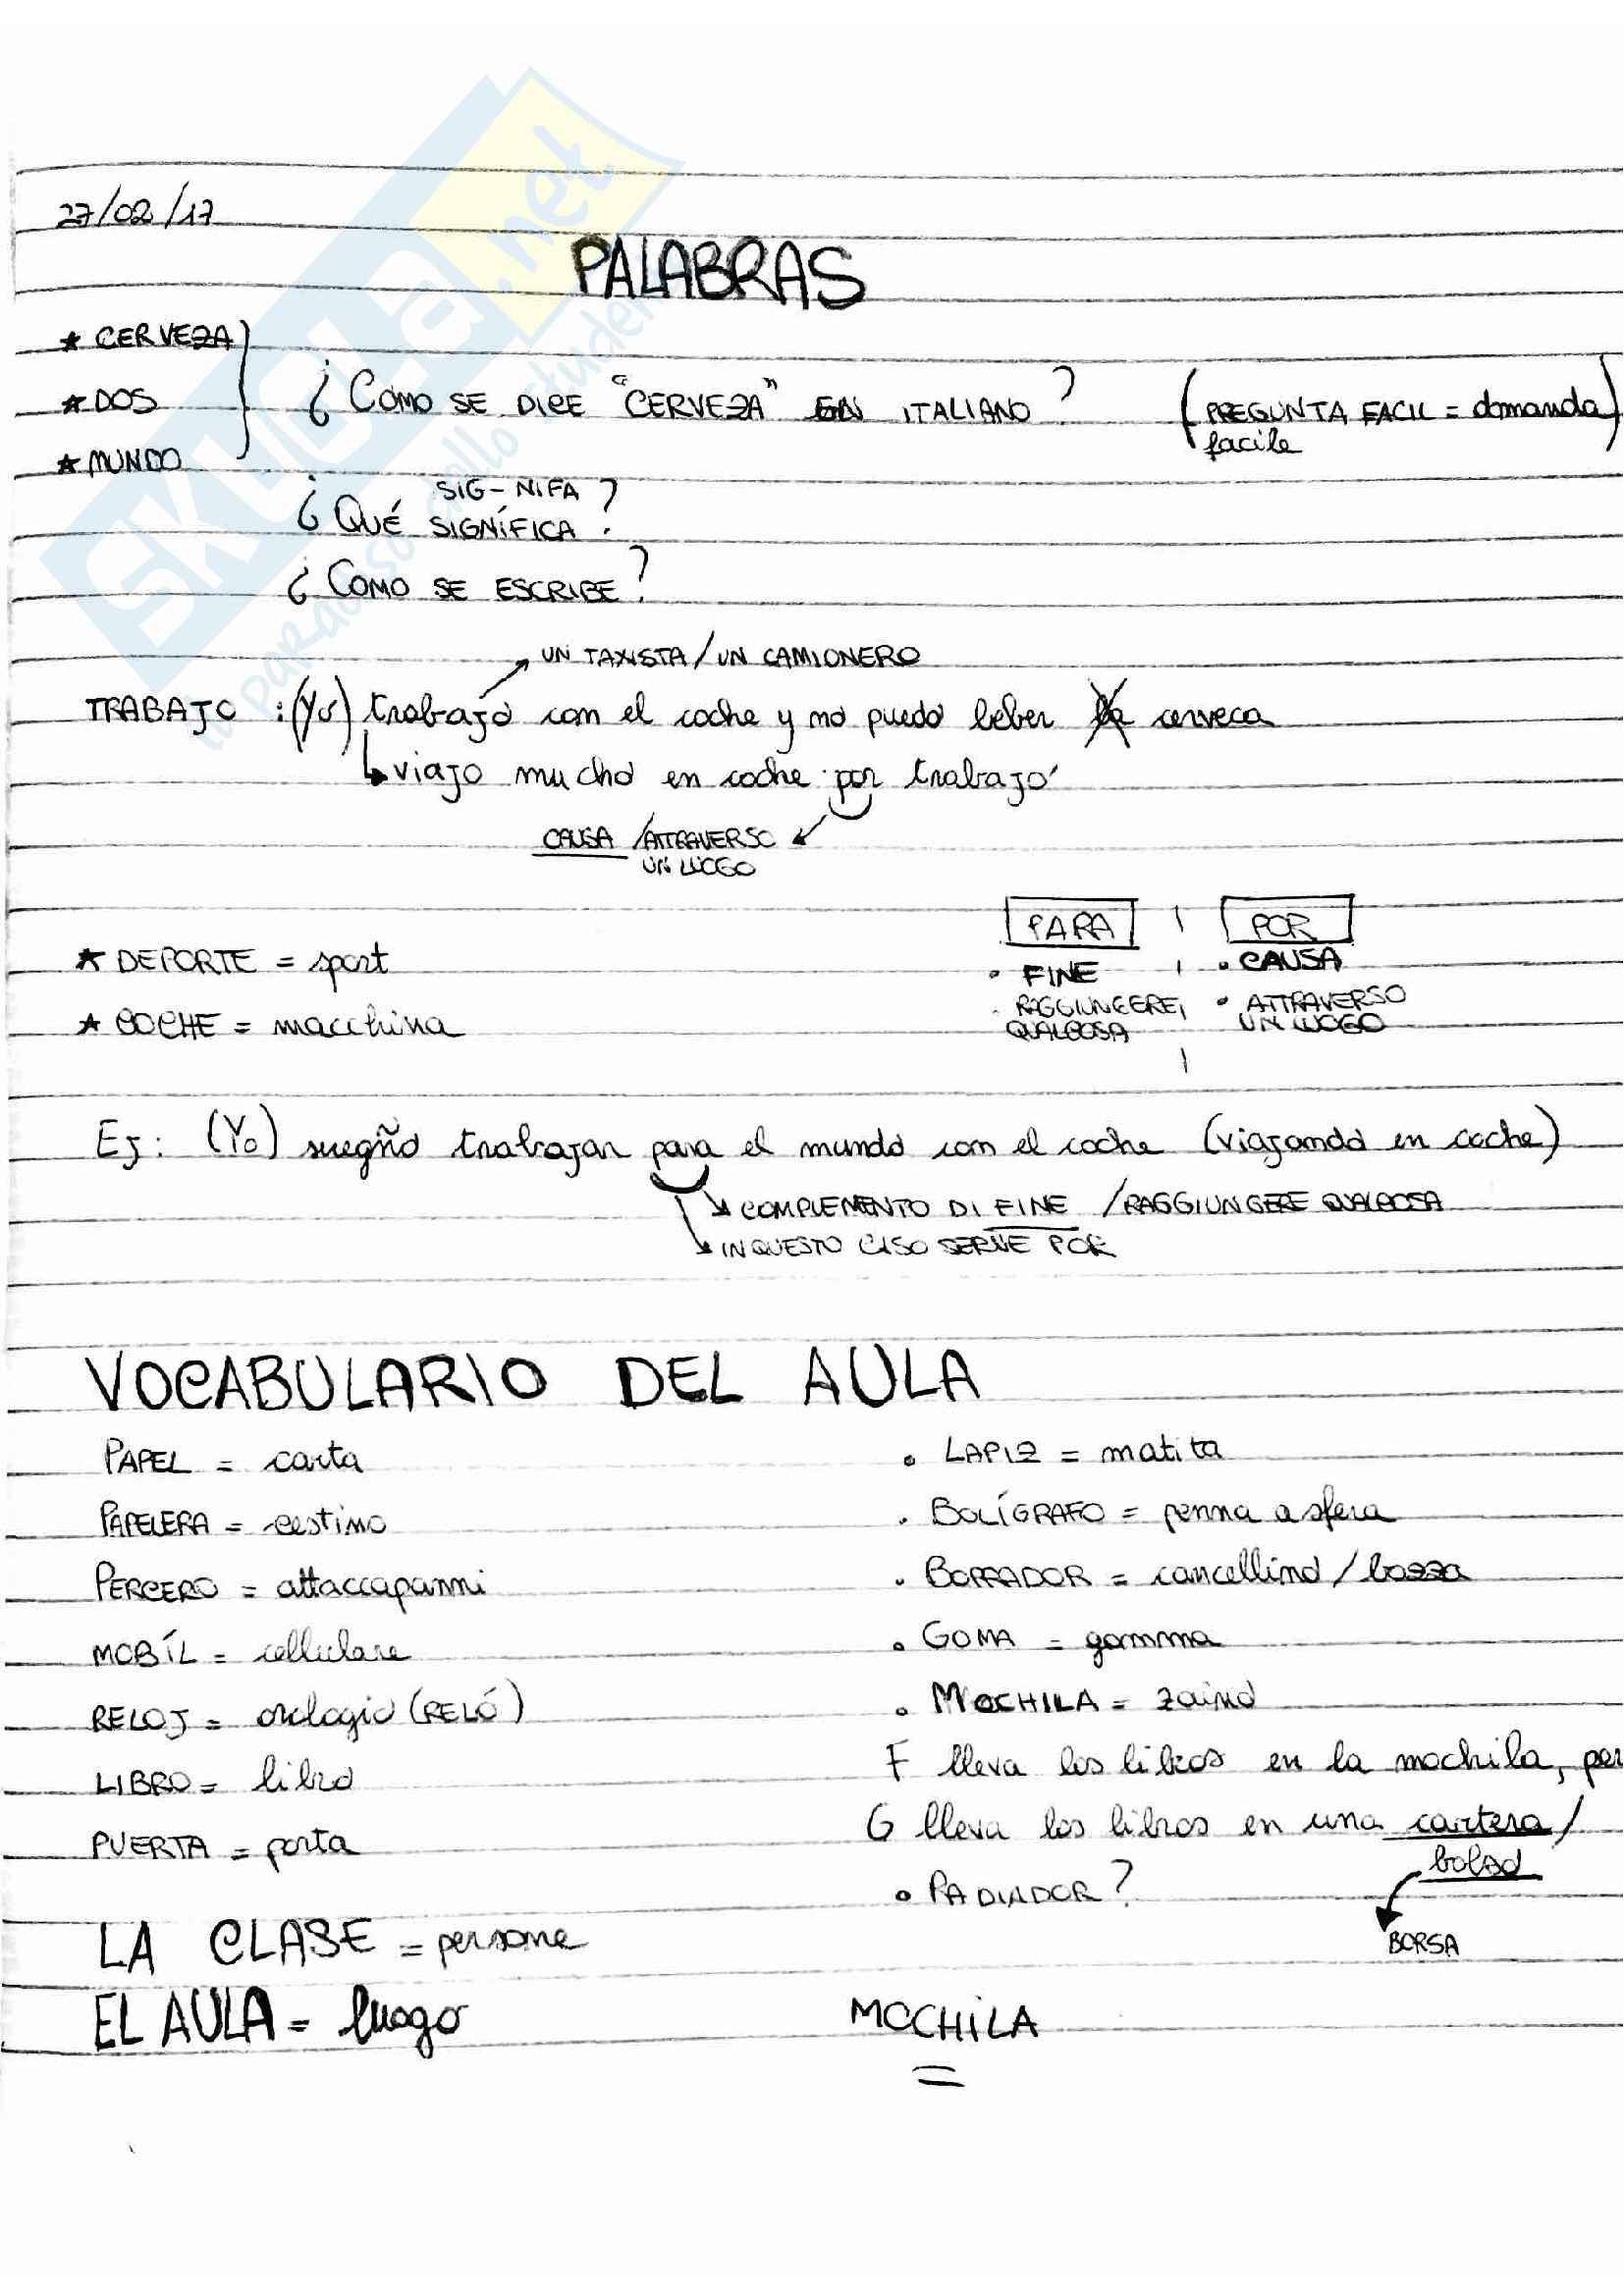 27/02/17
PALABRAS
★ CERVEZA
★ DOS
★ MUNDO
¿COMO SE DICE "CERVEZA" EN ITALIANO?
(PREGUNTA FACIL = domanda facile)
SIG-NIFA
¿QUÉ SIGNÍFICA?
¿COMO SE ESCRIBE?
UN TAXISTA/UN CAMIONERO
TRABAJO : (YO) trabajo con el coche y no puedo beber cerveca
viajo mucho en coche por trabajo
CAUSA /ATTRAVERSO
UN LUOGO
PARA | POR
• FINE | • CAUSA
• RAGGIUNGERE QUALCOSA | • ATTRAVERSO UN LUOGO
★ DEPORTE = sport
★ COCHE = macchina
Ej: (Yo) suegño trabajar para el mundo con el coche (viajando en coche)
COMPLEMENTO DI FINE /RAGGIUNGERE QUALCOSA
IN QUESTO CASO SERVE POR
VOCABULARIO DEL AULA
PAPEL = carta
PAPELERA = cestino
PERCERO = attaccapanni
MOBÍL = cellulare
RELOJ = orologio (RELÓ)
LIBRO = libro
PUERTA = porta
LA CLASE = persone
EL AULA = luogo
• LAPIZ = matita
• BOLÍGRAFO = penna a sfera
• BORRADOR = cancellino / bozza
• GOMA = gomma
• MOCHILA = zaino
F lleva los libros en la mochila, per
G lleva los libros en una cartera/
bolso
BORSA
• RADIADOR?
MOCHILA
SKUOLA.net
il paradiso dello studente